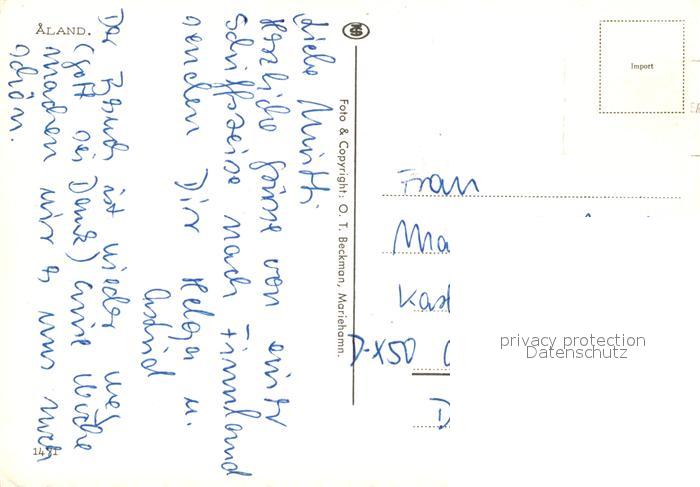 ÅLAND.
Liebe Mutti,
herzliche Grüsse von einer
Schiffsreise nach Finnland
senden Dir Helga u.
Astrid
Der Besuch ist wieder weg
(gott sei Dank) eine Woche
machen wir es uns noch
schön.
1471
Foto & Copyright: O. T. Beckman, Mariehamn.
Import
Frau
Ma
Kast
D-X50
D
privacy protection
Datenschutz